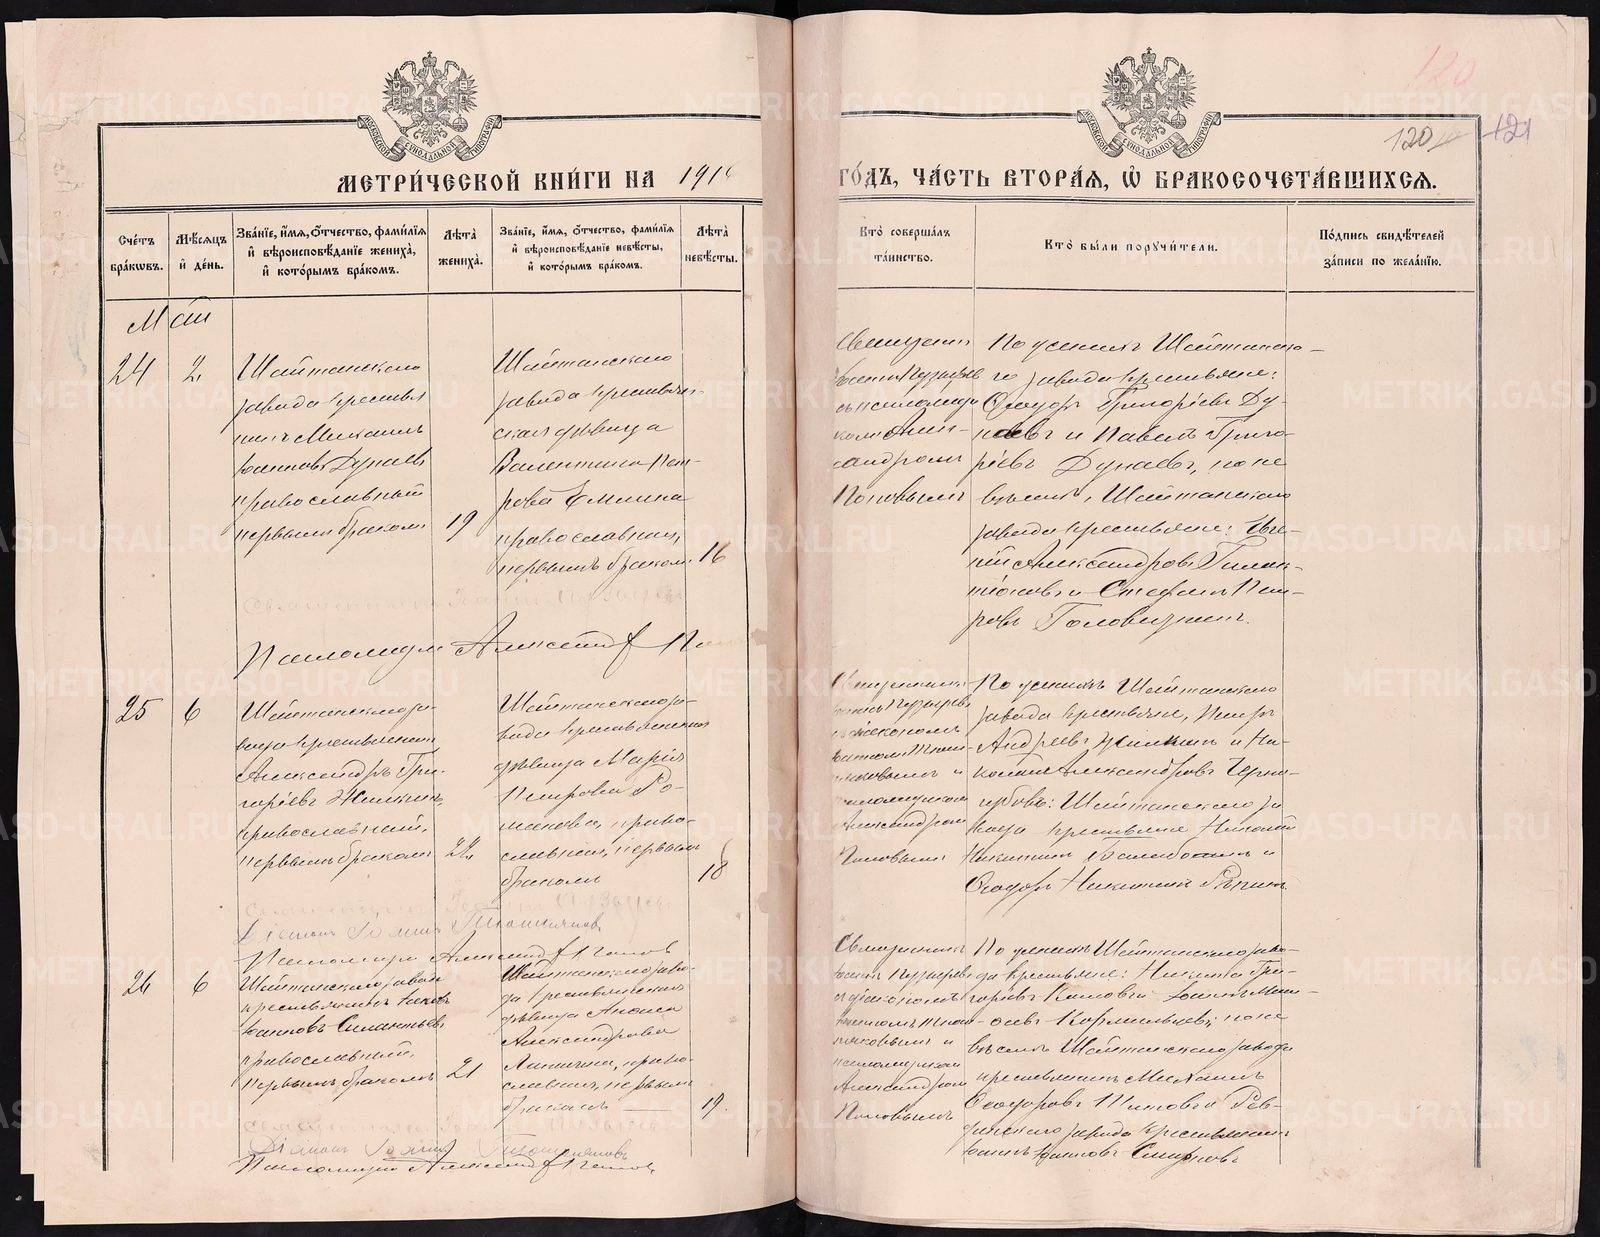 120
120
121
МОСКОВСКОЙ СУНОДАЛЬНОЙ ТИПОГРАФІИ
МОСКОВСКОЙ СУНОДАЛЬНОЙ ТИПОГРАФІИ
МЕТРИ́ЧЕСКОЙ КНИ́ГИ НА 191
ГО́ДЪ, ЧА́СТЬ ВТОРА́Я, Ѡ҆ БРАКОСОЧЕТА́ВШИХСЯ.
Сче́тъ бра́кѡвъ.
Мѣ́сяцъ и҆ де́нь.
Зва́нїе, и҆́мя, ѻ҆́тчество, фами́лїя и҆ вѣроисповѣ́данїе жениха̀, и҆ кото́рымъ бра́комъ.
Лѣ́та жениха̀.
Зва́нїе, и҆́мя, ѻ҆́тчество, фами́лїя и҆ вѣроисповѣ́данїе невѣ́сты, и҆ кото́рымъ бра́комъ.
Лѣ́та невѣ́сты.
Кто̀ соверша́лъ та́инство.
Кто̀ бы́ли поручи́тели.
По́дпись свидѣ́телей за́писи по жела́нїю.
Май
24
2
Шайтанскаго
завода крестья
нинъ Михаилъ
Іоанновъ Дунаевъ
православный
первымъ бракомъ
19
Шайтанскаго
завода крестьян-
ская дѣвица
Валентина Пет-
рова Емлина
православная,
первымъ бракомъ
16
Священникъ
Іоаннъ Пузыревъ
съ псаломщи
комъ Алек-
сандромъ
Поповымъ
По женихѣ Шайтанска-
го завода крестьяне:
Ѳеодоръ Григорьевъ Ду-
наевъ и Павелъ Григо-
рьевъ Дунаевъ, по не
вѣстѣ, Шайтанскаго
завода крестьяне: Евге-
ній Александровъ Галак-
тіоновъ и Стефанъ Пет-
ровъ Головизнинъ.
Священникъ Іоаннъ Пузыревъ
Псаломщикъ Александръ По
25
6
Шайтанскаго за-
вода крестьянинъ
Александръ Гри-
горьевъ Жилкинъ
православный,
первымъ бракомъ
22
Шайтанскаго за-
вода крестьянская
дѣвица Марія
Петрова Ро-
манова, право-
славная, первымъ
бракомъ
18
Священникъ
Іоаннъ Пузыревъ
съ діакономъ
псаломщикомъ
Александромъ
Поповымъ
По женихѣ Шайтанскаго
завода крестьяне, Петръ
Андреевъ Жилкинъ и Ни-
колай Александровъ Черно-
губовъ: Шайтанскаго за
вода крестьяне Николай
Никитинъ
Ѳеодоръ Никитинъ Рѣпинъ
Священникъ Іоаннъ Пузыревъ
Діаконъ Іоаннъ
Псаломщикъ Александръ Поповъ
26
6
Шайтанскаго завода
крестьянинъ Іаковъ
Іоанновъ Силантьевъ
православный,
первымъ бракомъ
21
Шайтанскаго заво-
да крестьянская
дѣвица Анна
Александрова
Лапина, право-
славная, первымъ
бракомъ
19.
Священникъ
Іоаннъ Пузыревъ
съ діакономъ
псаломщикомъ
Александромъ
Поповымъ
По женихѣ Шайтанскаго заво-
да крестьяне: Никита Гри-
горьевъ
вѣстѣ Шайтанскаго завода
крестьянинъ Михаилъ
Ѳеодоровъ Титовъ и Рев-
динскаго завода крестьянинъ
Іоаннъ Іоанновъ Смирновъ
Діаконъ Іоаннъ
Псаломщикъ Александръ Поповъ
METRIKI.GASO-URAL.RU